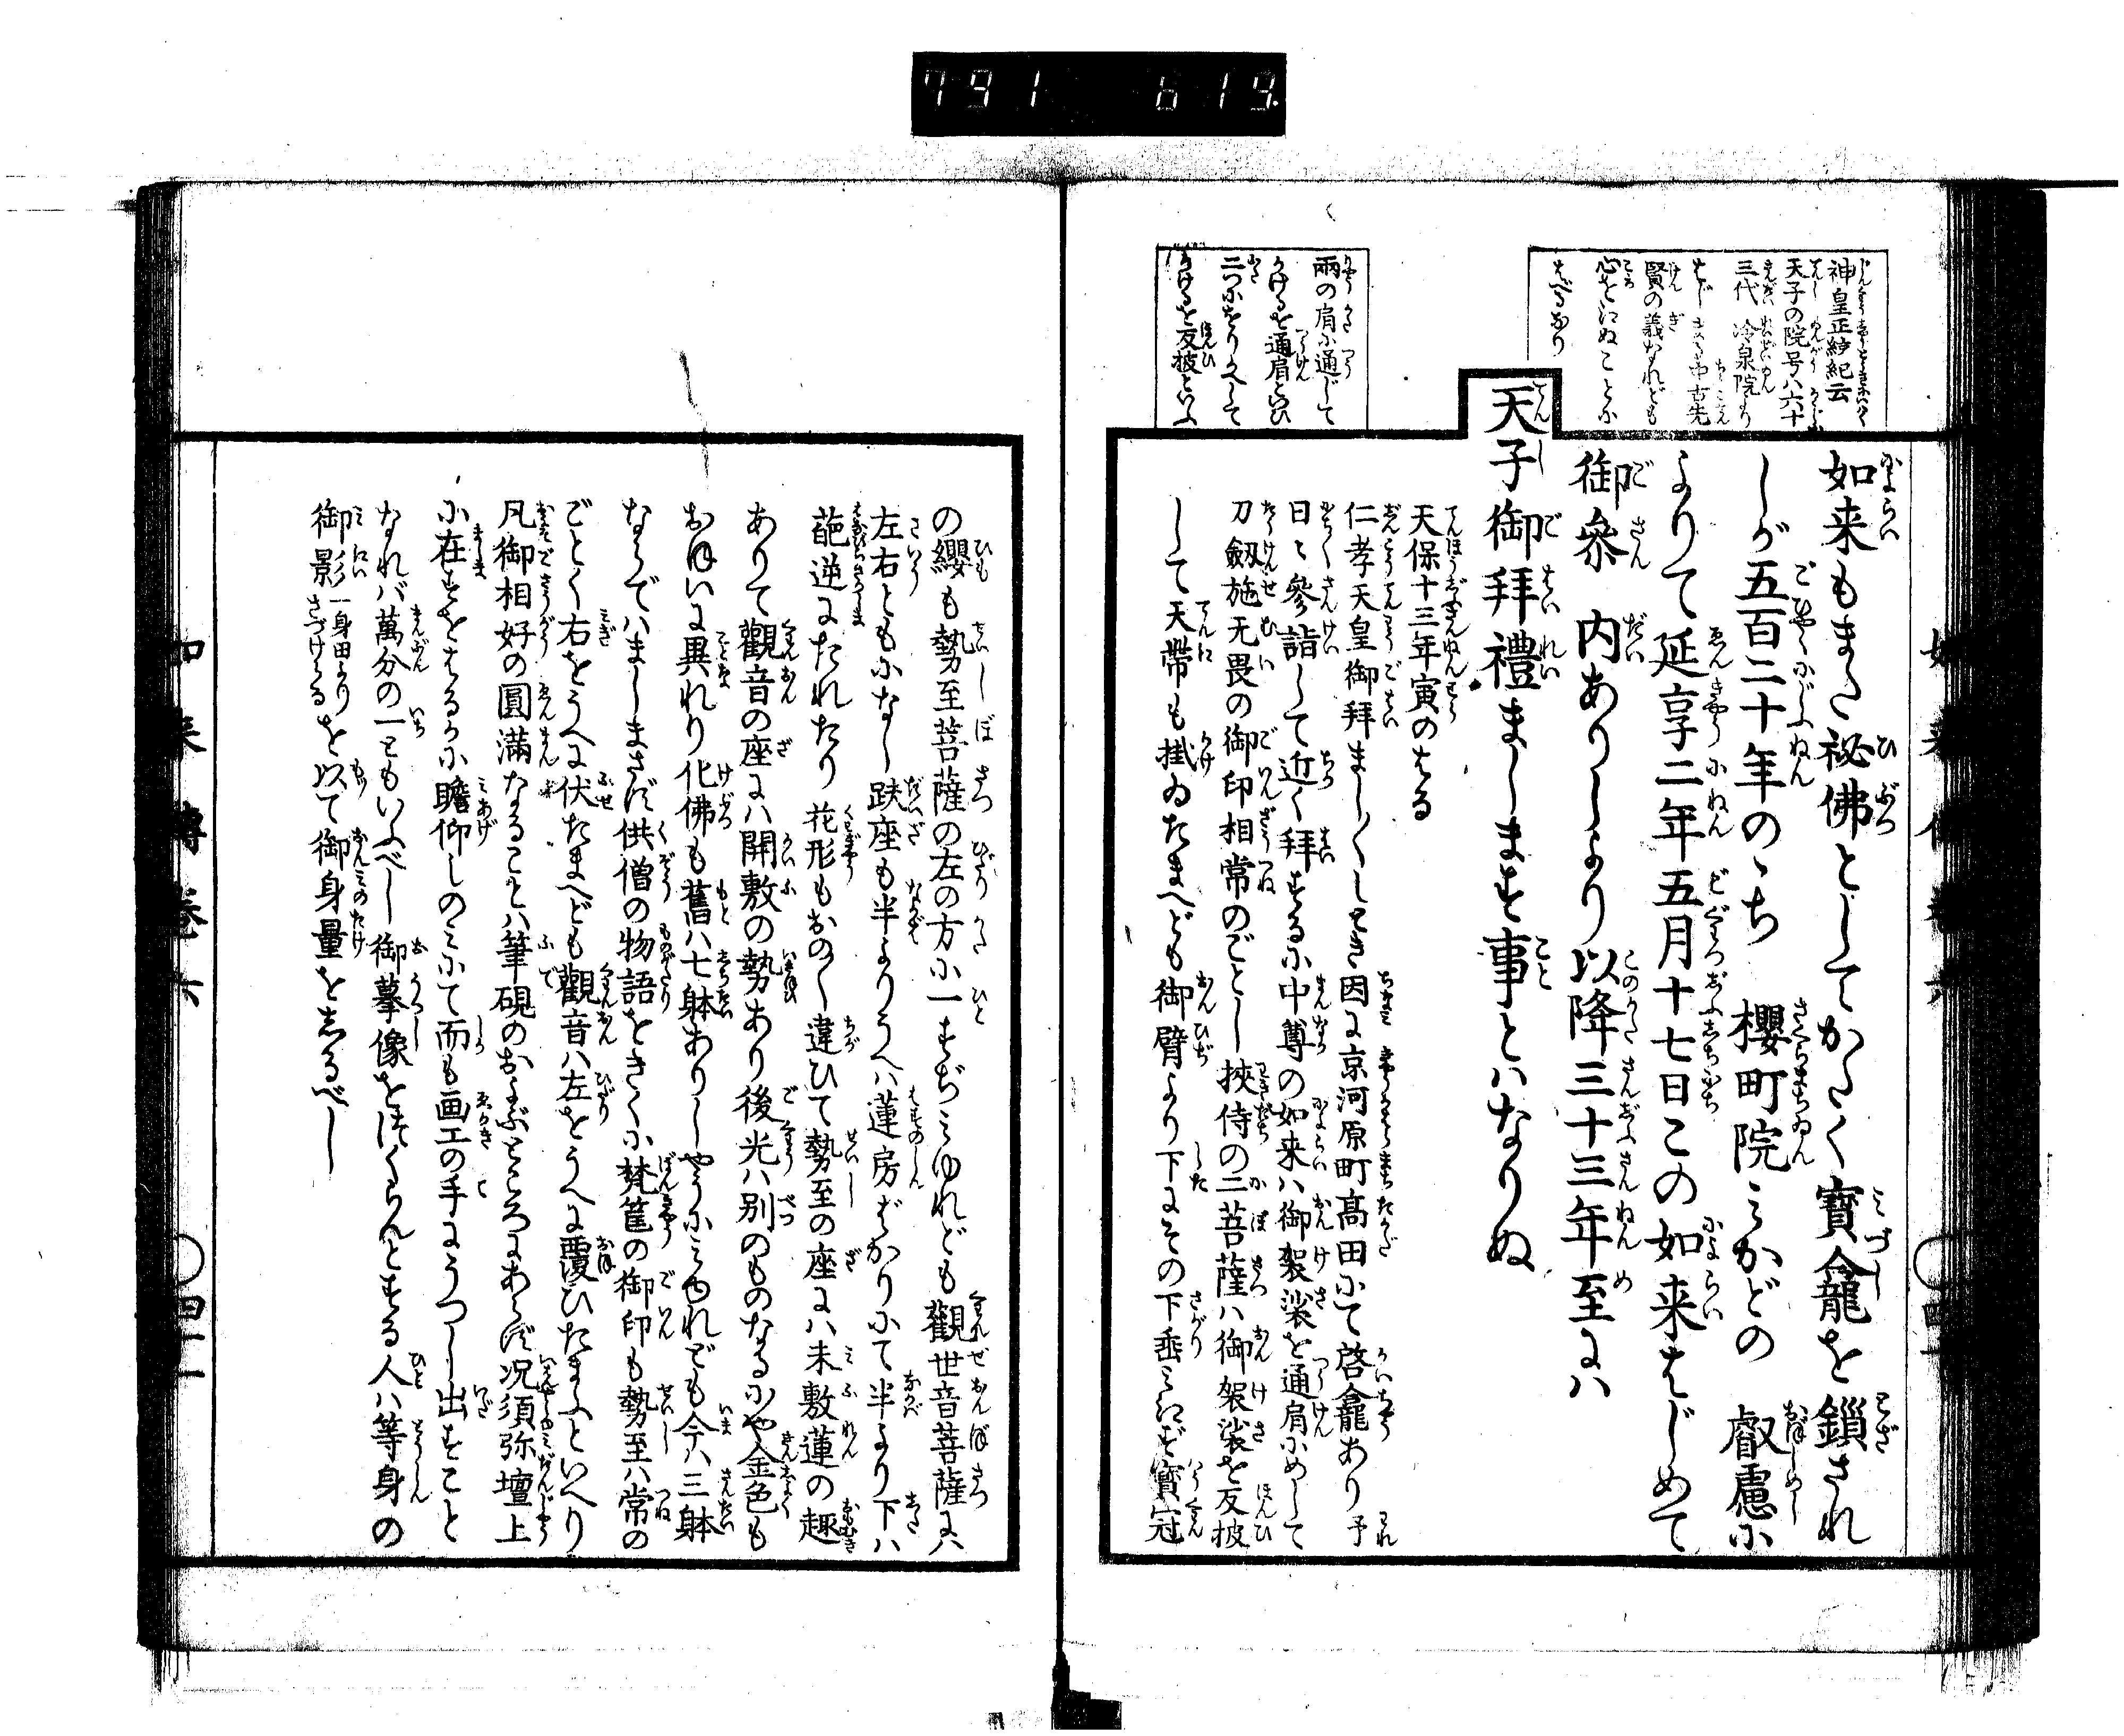 791 619
神皇正統紀云
天子の院号ハ六十
三代 冷泉院より
はじまる 中古先
賢の義なれども
心をえぬことに
はべるなり
如来もまた祕佛としてかたく寶龕を鎖され
しが五百二十年のゝち 櫻町院みかどの 叡慮に
よりて延享二年五月十七日この如来はじめて
御參 内ありしより以降三十三年至にハ
天子御拜禮ましますす事とハなりぬ
両の肩に通じて
かけるを通肩といひ
二つにをりかへして
かけるを反披といふ
天保十三年寅のはる
仁孝天皇御拜ましましゝとき因に京河原町髙田にて啓龕あり予
日々參詣して近く拜するに中尊の如来ハ御袈裟を通肩にめして
刀劔施无畏の御印相常のごとし挾侍の二菩薩ハ御袈裟を反披
して天帶も掛ゐたまへども御臂より下にその下埀みえず寳冠
の纓も勢至菩薩の左の方に一すぢみゆれども觀世音菩薩にハ
左右ともになし趺座も半よりうへハ蓮房ばかりにて半より下ハ
葩逆にたれたり花形もおのおの違ひて勢至の座にハ未敷蓮の趣
ありて觀音の座にハ開敷の勢あり後光ハ別のものなるにや金色も
おほいに異れり化佛も舊ハ七躰ありしやうにみゆれども今ハ三躰
ならでハましまさず供僧の物語をきくに梵筐の御印も勢至ハ常の
ごとく右をうへに伏たまへども觀音ハ左をうへに覆ひたまふといへり
凡御相好の圓滿なることハ筆硯のおよぶところにあらず况須弥壇上
に在すをはるかに瞻仰しのみにて而も画工の手にうつし出すこと
なれバ萬分の一ともいふべし御摹像をつくらんとする人ハ等身の
御影一身田より さづけらるを以て御身量をしるべし
如来傳卷六 〇四十一